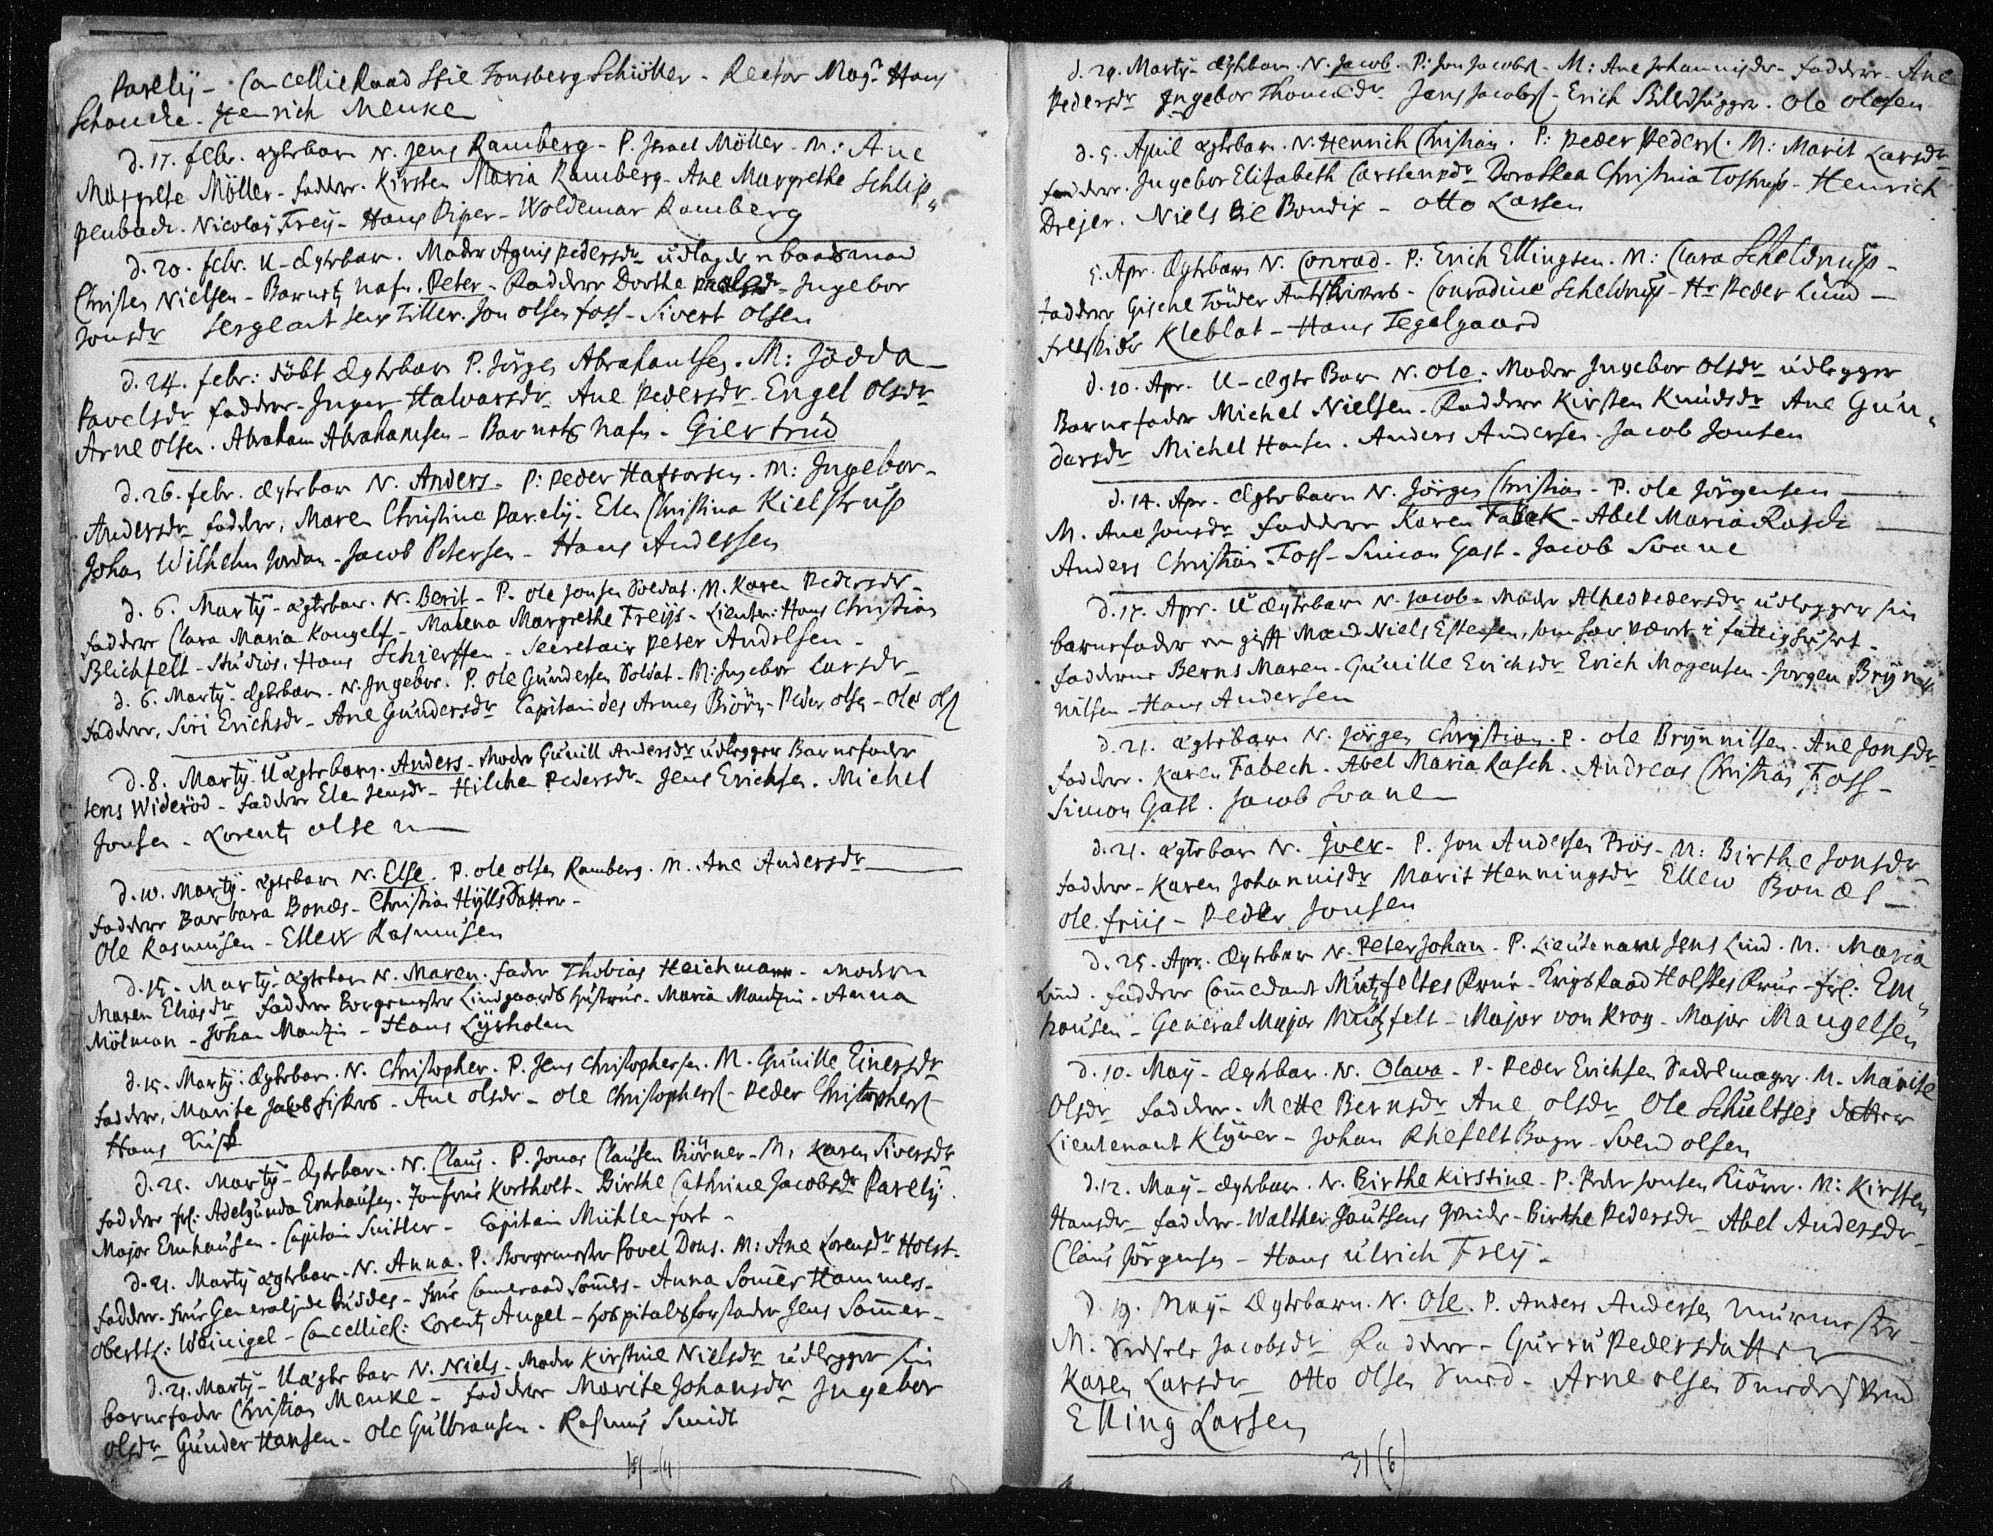 Parelÿ - CancellieRaad Stie Tonsberg Schiöller - Rector Mag. Hans
Schoucke - Henrich Menke
d. 17. febr. ægtebarn N. Jens Ramberg - P. Israel Möller - M: Ane
Margrete Möller - faddere. Kirsten Maria Ramberg - Ane Margrethe Schlip„
penbach. Nicolaÿ Freÿ - Hans Piper - Woldemar Ramberg
d. 20. febr. U-Ægtebarn. Moder Agnis Pedersdr udlagde en baadsmand
Christen Nielsen - Barnets nafn. Peter - Faddere Dorthe - Ingebor
Jonsdr Sergeant Jens Titter. Jon olsen foss - Sivert Olsen
d. 24. febr: döbt Ægtebarn P. Jörgen Abrahamsen. M: Jödda
Pavelsdr faddere - Inger Halvarsdr Ane Pedersdr - Engel Olsdr
Arne Olsen. Abraham Abrahamsen - Barnets Nafn - Giertrud
d. 26. febr. Ægtebarn N. Anders - P: Peder Hafforsen. M: Ingebor
Andersdr faddere, Maren Christina Parelÿ. Elen Christina Kielstrup
Johan Wilhelm Jordan - Jacob Petersen - Hans Andersen
d. 6. Martÿ - ægtebarn. N. Berit - P. Ole Jonsen Soldat. M. Karen Pedersdr
faddere Clara Maria Kougelf - Malena Margrethe Freÿs - Lieuten: Hans Christian
Blichfelt - Studios. Hans Schierffen - Secretair Peter Andresen
d. 6. Martÿ - Ægtebarn. N. Ingebor. P. Ole Gundersen Soldat - M: Ingebor Larsdr
faddere, Siri Erichsdr - Ane Gundersdr Capitain des Armes Biörn - Peder olsen - Ole Ols
d. 8. Martÿ U ægtebarn. Anders - Moder Gunill Andersdr udlegger Barnefader
Jens Wideröd - faddere Elen Jensdr - Hilche Pedersdr - Jens Erichsen. Michel
Jonsen - Lorentz olsen
d. 10. Martÿ - ægtebarn N. Else. P. ole olsen Ramberg. M. Ane Andersdr
faddere Barbara Bonæs - Christian Hylls Datter -
Ole Rasmusen - Ellew Rasmusen
d. 15. Martÿ - ægtebarn N. Maren. fader Thobias Heichmann - moderen
Maren Eliasdr faddere Borgemester Lindgaards Hustrue - Maria Mantzin - Anna
Mölman - Johan Mantzin - Hans Lÿsholm
d. 15. Martÿ: Ægtebarn. N. Christopher. P. Jens Christophersen. M. Gunille Einersdr
faddere, Marite Jacob fiskers - Ane olsdr - ole Christophers - Peder Christophers
Hans Lusk
d. 21. Martÿ - Ægtebarn. N. Claus. P. Jonas Clausen Biörner - M: Karen Siversdr
faddere frl: Adelgunda Emhausen. Jomfrue Kortholt - Birthe Cathrine Jacobsdr Parelÿ
Major Emhausen - Capitain Suitler - Capitain Mühlenfort -
d. 21. Martÿ ægtebarn. N. Anna. P. Borgemester Povel Dons. M: Ane Lorensdr Holst.
faddere - Frue Generalinde Buddes - frue Cameraad Somers - Anna Somer Hammers
Obertl: Weinigel - Cancellier: Lorentz Angel - Hospitals forstander Jens Somer
d. 21. Martÿ - U ægte barn N. Niels - Moder Kirstine Nielsdr udlegger sin
barnefader Christian Menke - faddere Marite Johansdr Ingebor
olsdr Gunder Hansen - Ole Gulbransen - Rasmus Smidt
d. 29. Martÿ - Ægtebarn. N. Jacob. P: Jon Jacobs - M: Ane Johannisdr - faddere - Ane
Pedersdr Ingebor Thomædr Jens Jacobs - Erich Billedhugger. Ole Olesen
d. 5. April ægtebarn. N: Henrich Christian. P: Peder Peders. M: Marit Larsdr
faddere. Ingebor Elizabeth Carstensdr Dorothea Christina Tostrup - Henrich
Drejer. Niels Bondix - Otto Lassen
5. Apr. Ægtebarn N. Conrad - P: Erich Ellingsen. M: Clara Scheldrup -
faddere Gische Töuder Amtskrivers - Conradine Scheldrup - Hr Peder Lund -
Kleblat - Hans Tegelgaard
d. 10. Apr. U-Ægte Barn N. Ole. Moder Ingebor Olsdr udlegger
Barnefader Michel Nielsen. Faddere Kirsten Knudsdr Ane Gun„
darsdr Michel Hansen. Anders Andersen. Jacob Jonsen
d. 14. Apr. Ægtebarn N. Jörgen Christian - P. ole Jörgensen
M. Ane Jonsdr Faddere Karen Fabek - Abel Maria Rasch
Anders Christian Foss - Simon Gast - Jacob Svane
d. 17. Apr. U Ægtebarn N. Jacob - Moder Alhed Pedersdr udlegger sin
barnefader en gift Mand Niels Estensen, som har været i fattighuset -
faddere Berns Maren - Gunille Erichsdr Erich Mogensen - Jorgen Brÿn„
nilsen - Hans Andersen
d. 21. ægtebarn N. Jörgen Christian. P. Ole Brÿnnilsen. Ane Jonsdr
faddere. Karen Fabech. Abel Maria Rasch. Andreas Christian Foss -
Simon Gast. Jacob Svane
d. 21. ægtebarn N. Iver - P. Jon Andersen Prös - M: Birthe Jonsdr
faddere - Karen Johannisdr Marit Henningsdr Ellew Bonæs
Ole friis - Peder Jonsen
d. 25. Apr. Ægtebarn N. Peter Johan. P. Lieutenant Jens Lund. M. Maria
Lund. faddere Comedant Mützfeltes Frue - KrigsRaad Holstes Frue - frl: Em„
hausen - General Major Mützfelt - Major von Krog - Major Maugelsen
d. 10. Maÿ - Ægtebarn. N. Olava - P. Peder Erichsen Sadelmager. M. Marite
Olsdr faddere. Mette Bernsdr Ane olsdr Ole Schultses datter
Lieutenant Klÿver - Johan Rhefelt Bager - Svend olsen
d. 12. Maÿ - Ægtebarn. N. Birthe Kirstine - P. Peder Jonsen Kiörer. M: Kirsten
Hansdr faddere - Walther Joutsens Qvinde - Birthe Pedersdr Abel Andersdr
Claus Jörgensen - Hans Ulrich Freÿ -
d. 19. Maÿ - Ægtebarn. N. Ole. P. Anders Andersen Murmester
M. Sidsele Jacobsdr Faddere - Gurru Pedersdatter
Karen Larsdr Otto Olsen Smed - Arne olsen Smedesvend
Elling Larsen
31 (6)